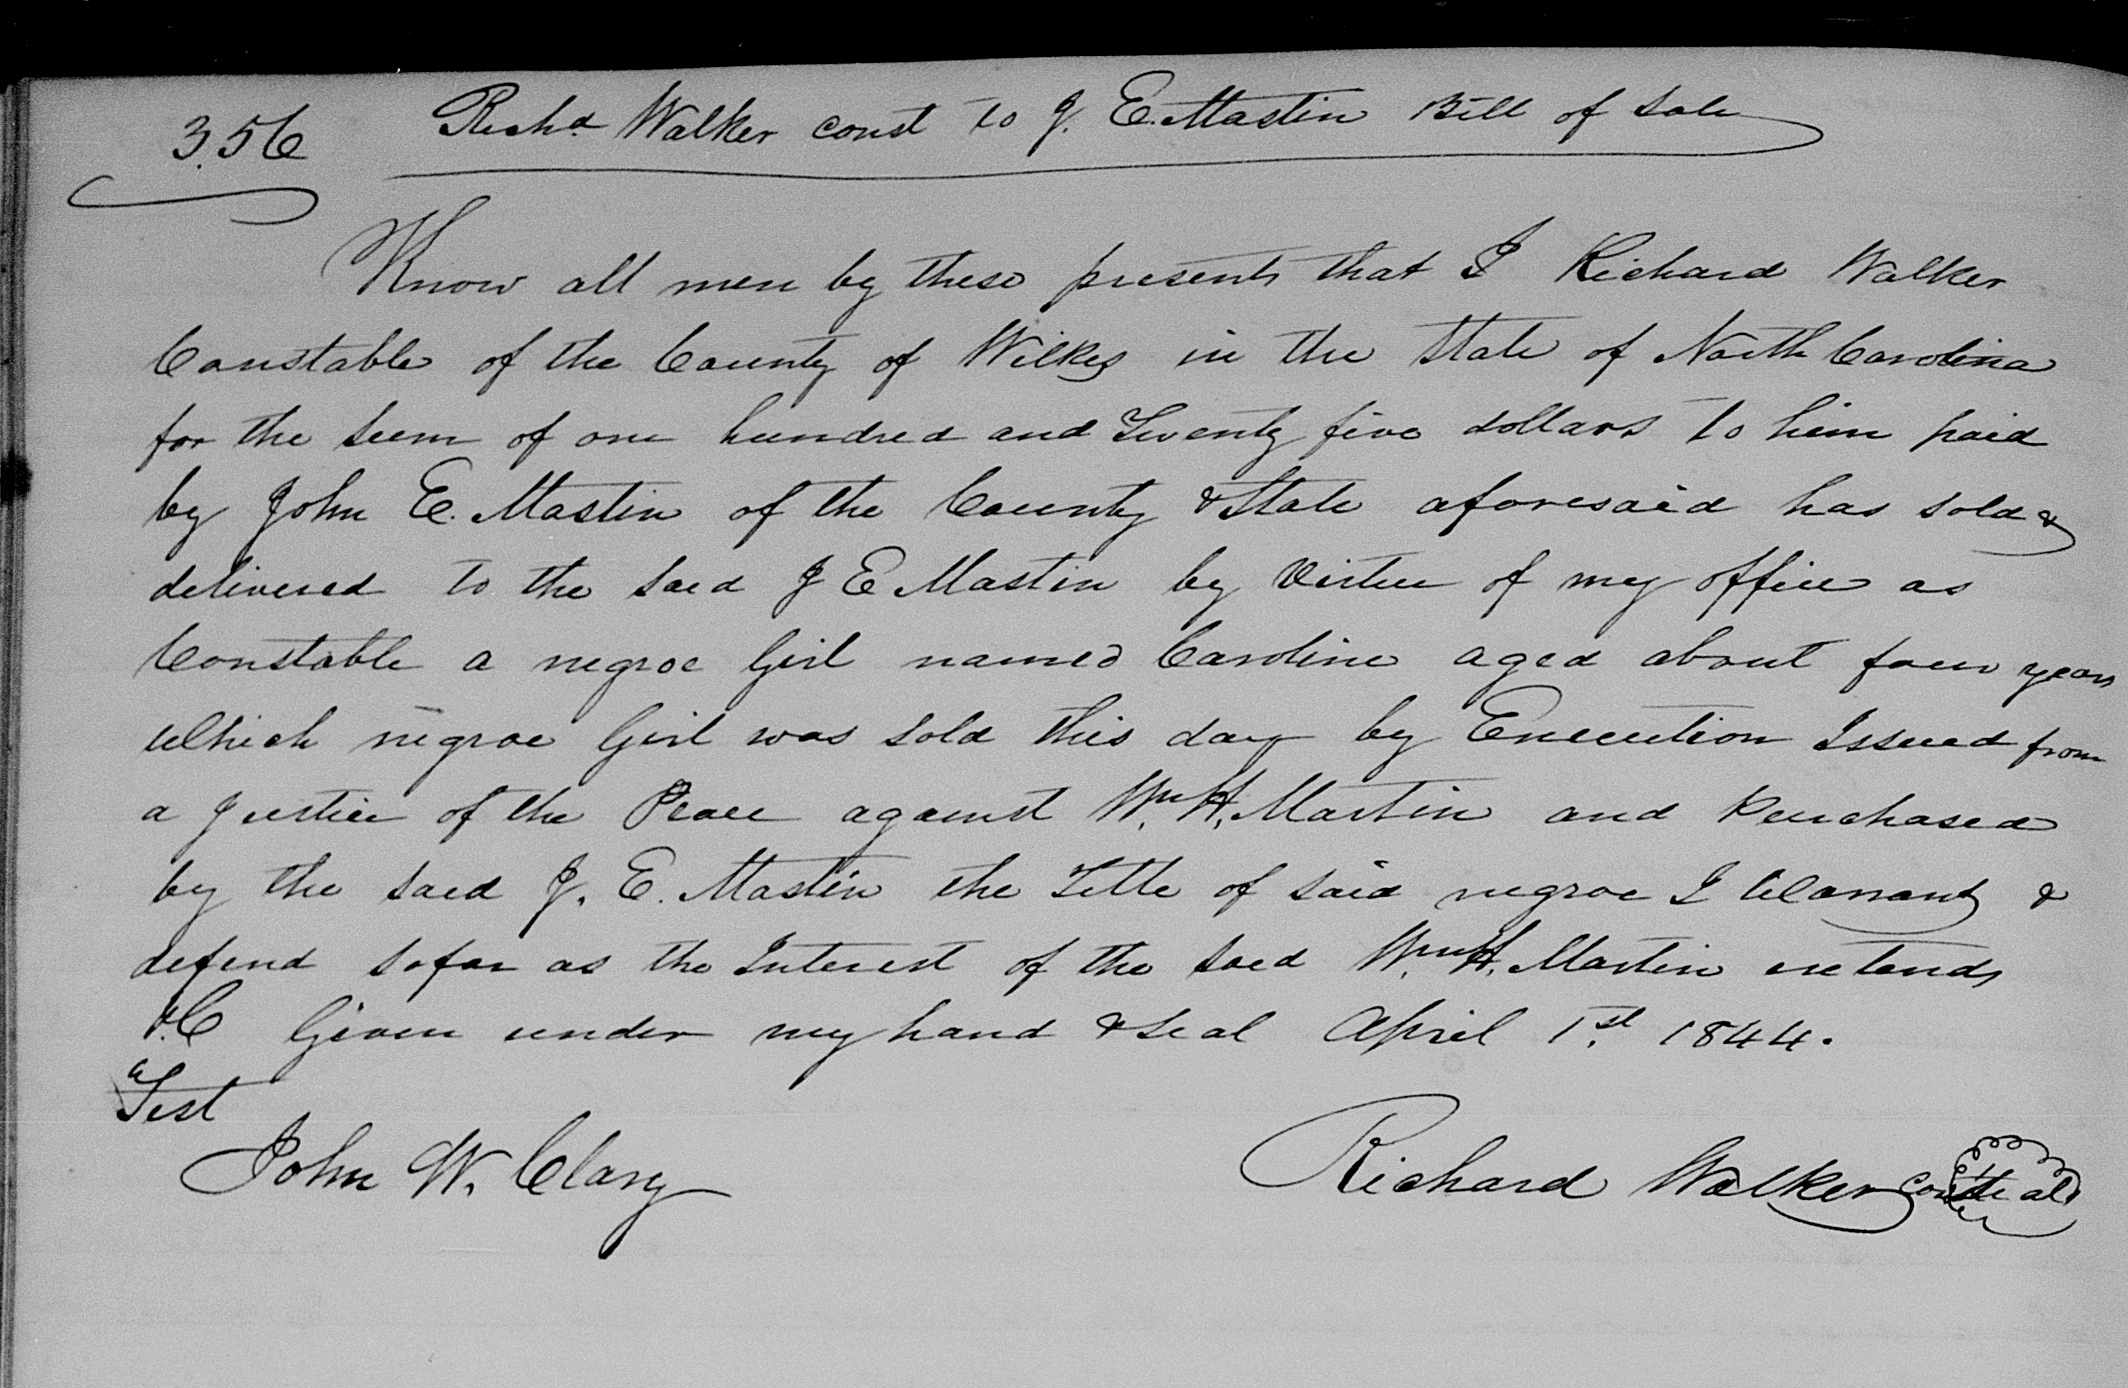 356 Richd. Walker const to J. E. Mastin Bill of Sale
Know all men by these presents that I Richard Walker
Constable of the County of Wilkes in the State of North Carolina
for the sum of one hundred and Twenty five dollars to him paid
by John E. Mastin of the County & State aforesaid has sold &
delivered to the said J E Mastin by Virtue of my office as
Constable a negroe Girl named Caroline aged about four years
which negroe Girl was sold this day by Execution Issued from
a Justice of the Peace against Wm. H. Martin and Purchased
by the said J. E. Mastin the Title of said negroe I Warrant &
defend so far as the Interest of the said Wm. H. Martin extends
&C Given under my hand & Seal April 1st. 1844.
Test
John W. Clary Richard Walker const Seal